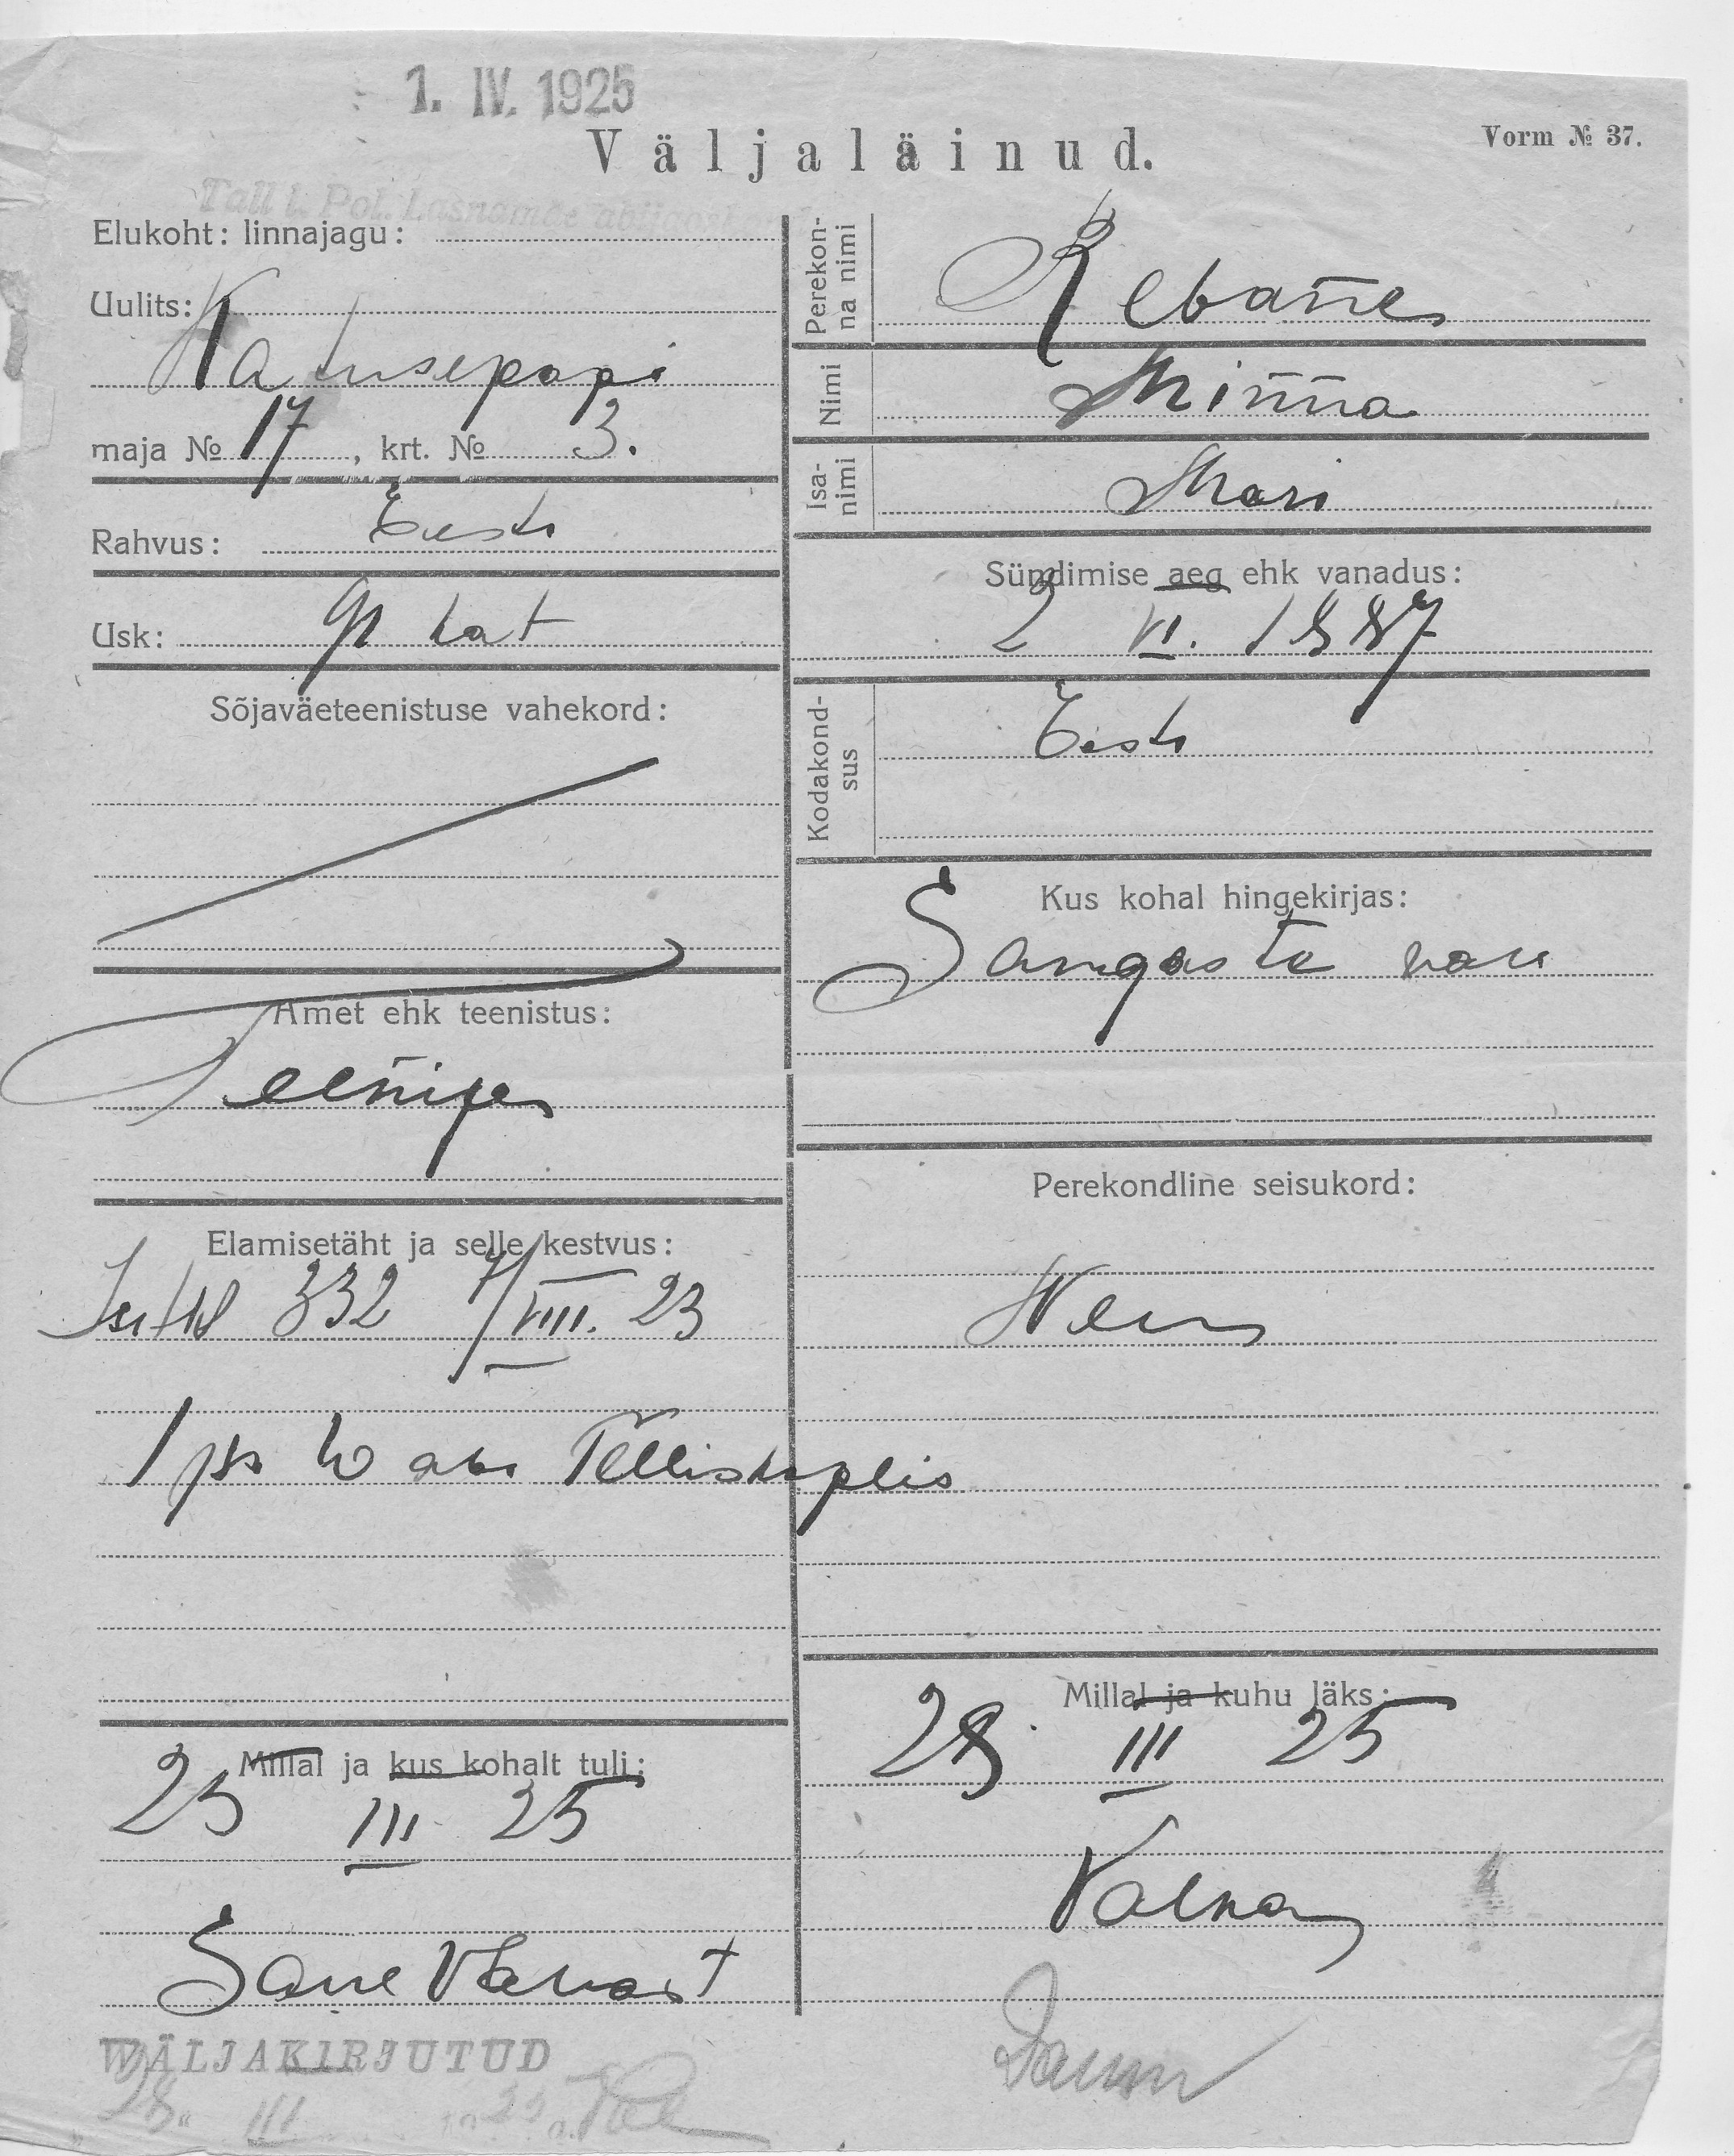 1. IV. 1925
Väljaläinud.
Vorm № 37.
Tall l. Pol. Lasnamäe
Elukoht: linnajagu:
Uulits:
Katusepapi
maja № 17, krt. № 3.
Rahvus: Eesti
Usk:
Sõjaväeteenistuse vahekord:
Amet ehk teenistus:
Teenija
Elamisetäht ja selle kestvus:
332 7/VIII. 23
Telliskoplis
Millal ja kus kohalt tuli:
25 III 25
Perekonna nimi
Rebane
Nimi
Minna
Isanimi
Mari
Sündimise aeg ehk vanadus:
2 VI. 1887
Kodakondsus
Eesti
Kus kohal hingekirjas:
Sangaste
Perekondline seisukord:
Millal ja kuhu läks:
28 III 25
WÄLJAKIRJUTUD
28. III